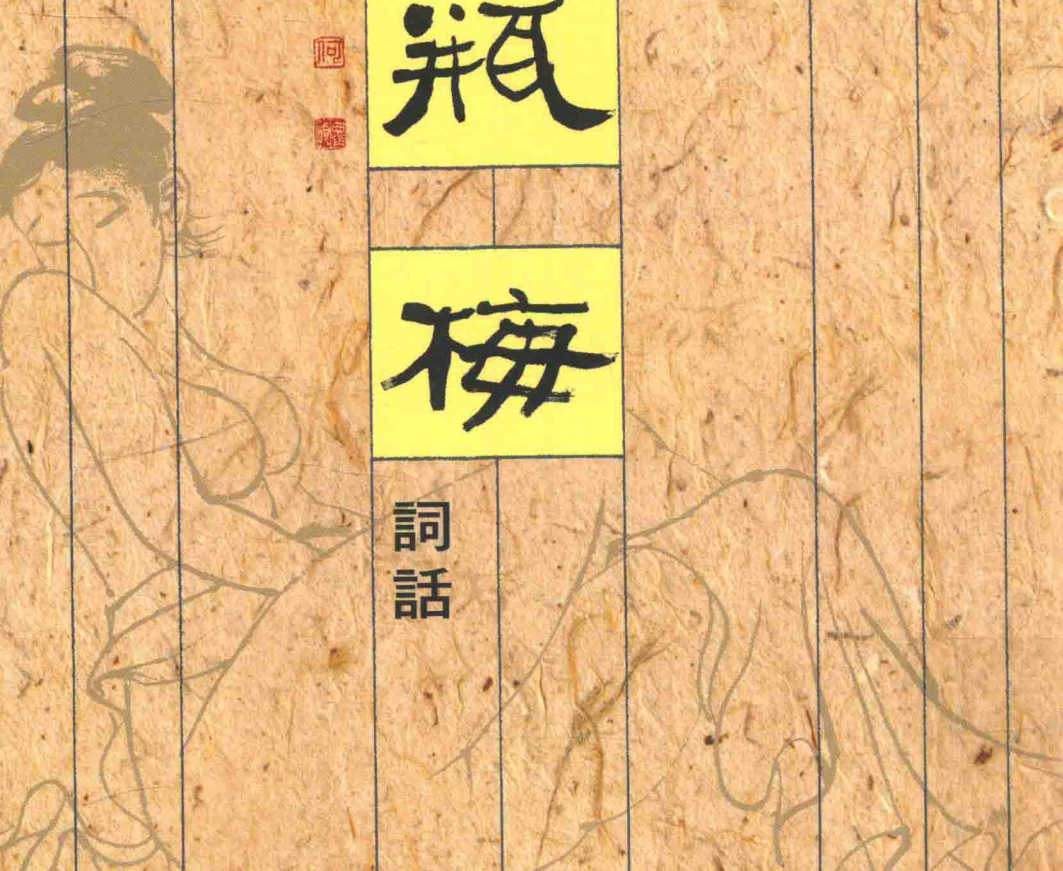 瓶
梅
詞
話
何